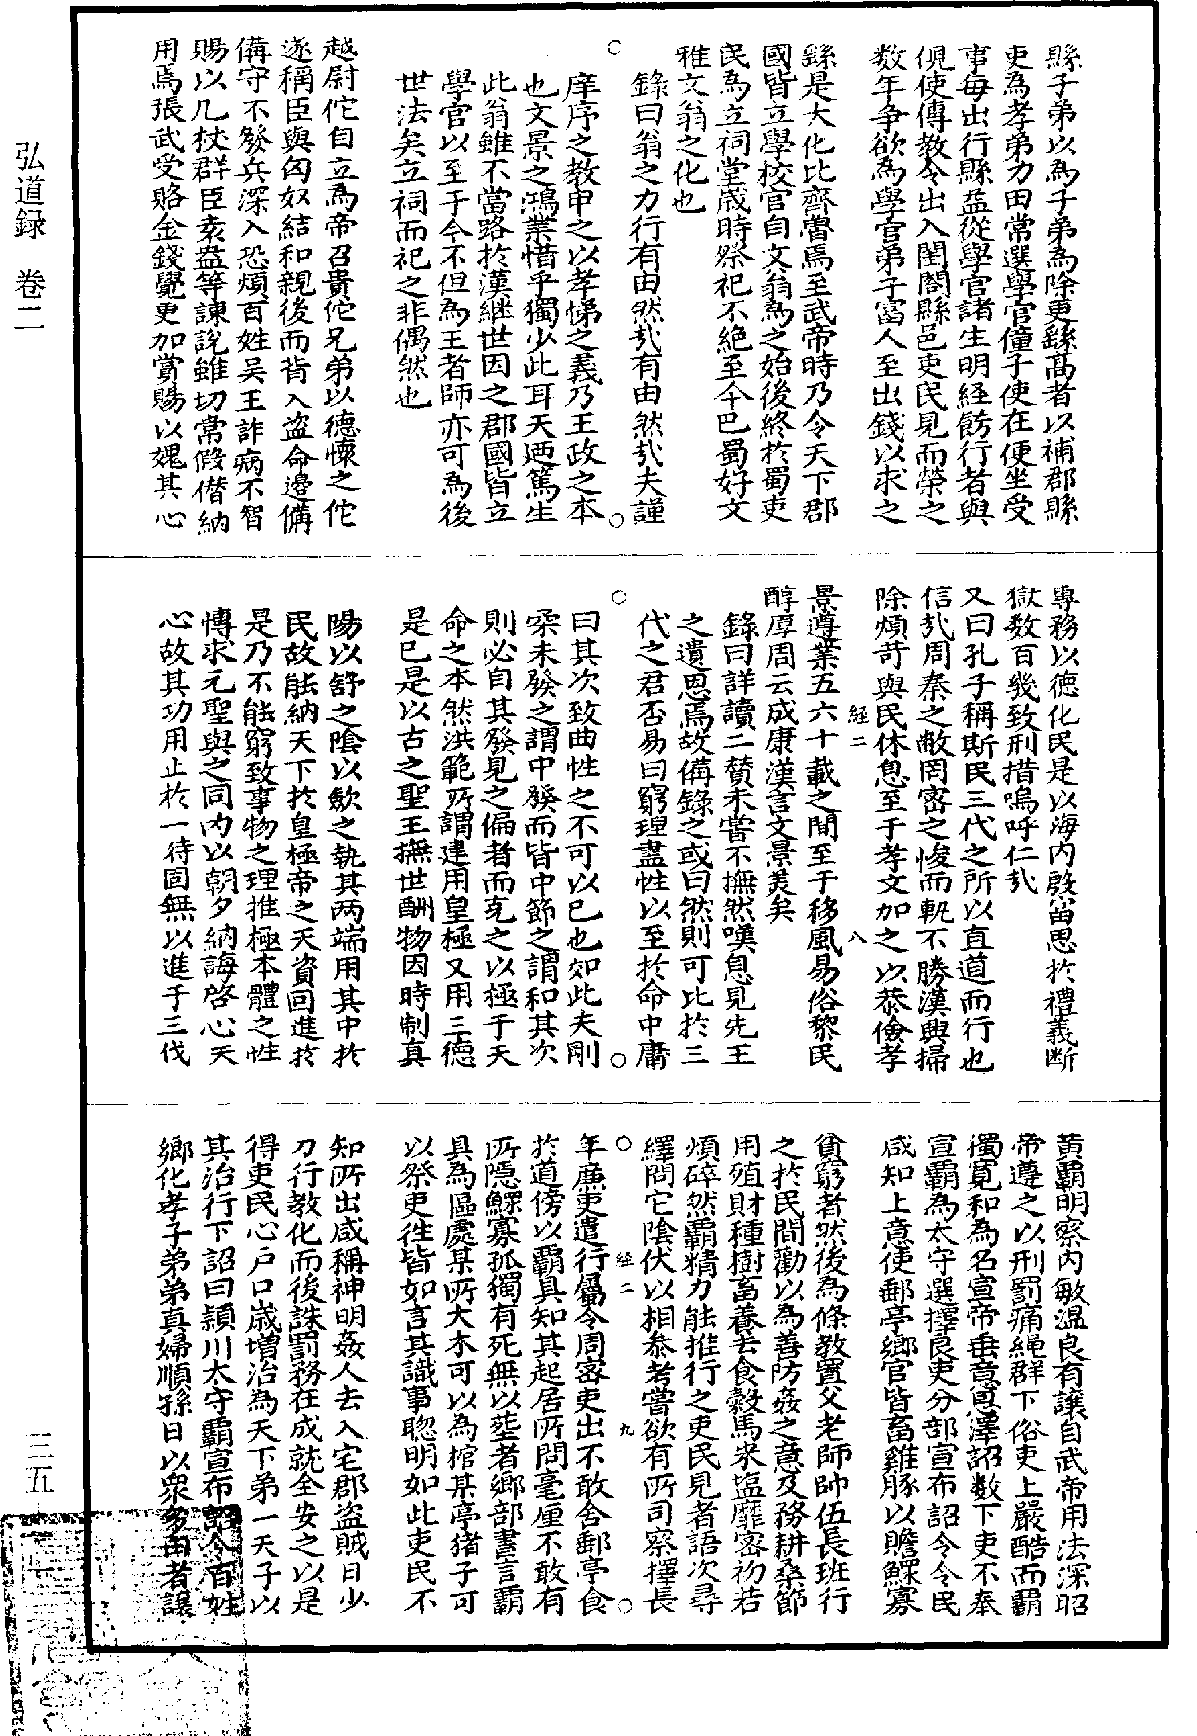 縣子弟以為子弟為除更繇高者以補郡縣
吏為孝弟力田常選學官僮子使在便坐受
事每出行縣益從學官諸生明經飭行者與
俱使傳教令出入閨閤縣邑吏民見而榮之
数年争欲為學官弟子富人至出錢以求之
繇是大化比齊魯焉至武帝時乃令天下郡
國皆立學校官自文翁為之始後終於蜀吏
民為立祠堂歲時祭祀不絶至今巴蜀好文
雅文翁之化也
錄曰翁之力行有由然㦲有由然㦲夫謹
庠序之教申之以孝悌之義乃王政之本
也文景之鴻業惜乎獨少此耳天迺篤生
此翁雖不當路於漢継世因之郡國皆立
學官以至于今不但為王者師亦可為後
世法矣立祠而祀之非偶然也
越尉佗自立為帝召貴佗兄弟以德懷之佗
遂稱臣與匈奴結和親後而背入盗命邊備
備守不發兵深入恐煩百姓吴王詐病不智
賜以几杖群臣袁盎等諫説雖切常假借納
用焉張武受賂金錢覺更加賞賜以媿其心
專務以德化民是以海内殷富思於禮義断
獄数百幾致刑措嗚呼仁㦲
又曰孔子稱斯民三代之所以直道而行也
信㦲周秦之敝罔密之悛而軌不勝漢興掃
除煩苛與民休息至于孝文加之以恭儉孝
經二
八
景遵業五六十載之間至于移風易俗黎民
醇厚周云成康漢言文景美矣
錄曰詳讀二賛未嘗不撫然嘆息見先王
之遺思焉故備錄之或曰然則可比於三
代之君否易曰窮理盡性以至於命中庸
曰其次致曲性之不可以已也如此夫剛
柔未發之謂中發而皆中節之謂和其次
則必自其發見之偏者而克之以極于天
命之本然洪範所謂建用皇極又用三德
是已是以古之聖王撫世酬物因時制真
陽以舒之陰以歛之執其兩端用其中於
民故能納天下於皇極帝之天資回進於
是乃不能窮致事物之理推極本體之性
博求元聖與之同内以朝夕納誨啓心天
心故其功用止於一待固無以進于三伐
黄霸明察内敏温良有讓自武帝用法深昭
帝遵之以刑罰痛䋲群下俗吏上嚴酷而霸
獨寛和為名宣帝垂意恩澤詔数下吏不奉
宣霸為太守選擇良吏分部宣布詔令令民
咸知上意使郵亭鄉官皆畜雞豚以贍鰥寡
貧窮者然後為條教置父老師帥伍長班行
之於民間勸以為善防姦之意及務耕桑節
用殖財種樹畜養去食榖馬米塩靡密初若
煩碎然霸精力能推行之吏民見者語次尋
繹問它陰伏以相叅考嘗欲有所司察擇長
經二
九
年廉吏遣行屬令周密吏出不敢舍郵亭食
於道傍以霸具知其起居所問毫厘不敢有
所隱鰥寡孤獨有死無以塟者鄉部書言霸
具為區處某所大木可以為棺某亭猪子可
以祭吏徃皆如言其識事聦明如此吏民不
知所出咸稱神明姦人去入宅郡盗賊日少
刀行教化而後誅罰務在成就全安之以是
得吏民心户口歲増治為天下弟一天子以
其治行下詔曰頴川太守霸宣布詔令百姓
鄉化孝子弟弟真婦順孫日以衆多田者讓
弘道録　卷二
三五